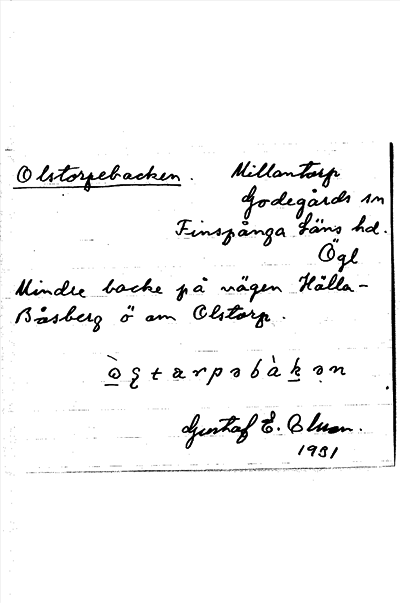 Olstorpebacken. Millantorp
Godegårds sn
Finspånga Läns hd.
Ögl
Mindre backe på vägen Hålla-
Båsberg ö om Olstorp.
Gustaf E.
1931